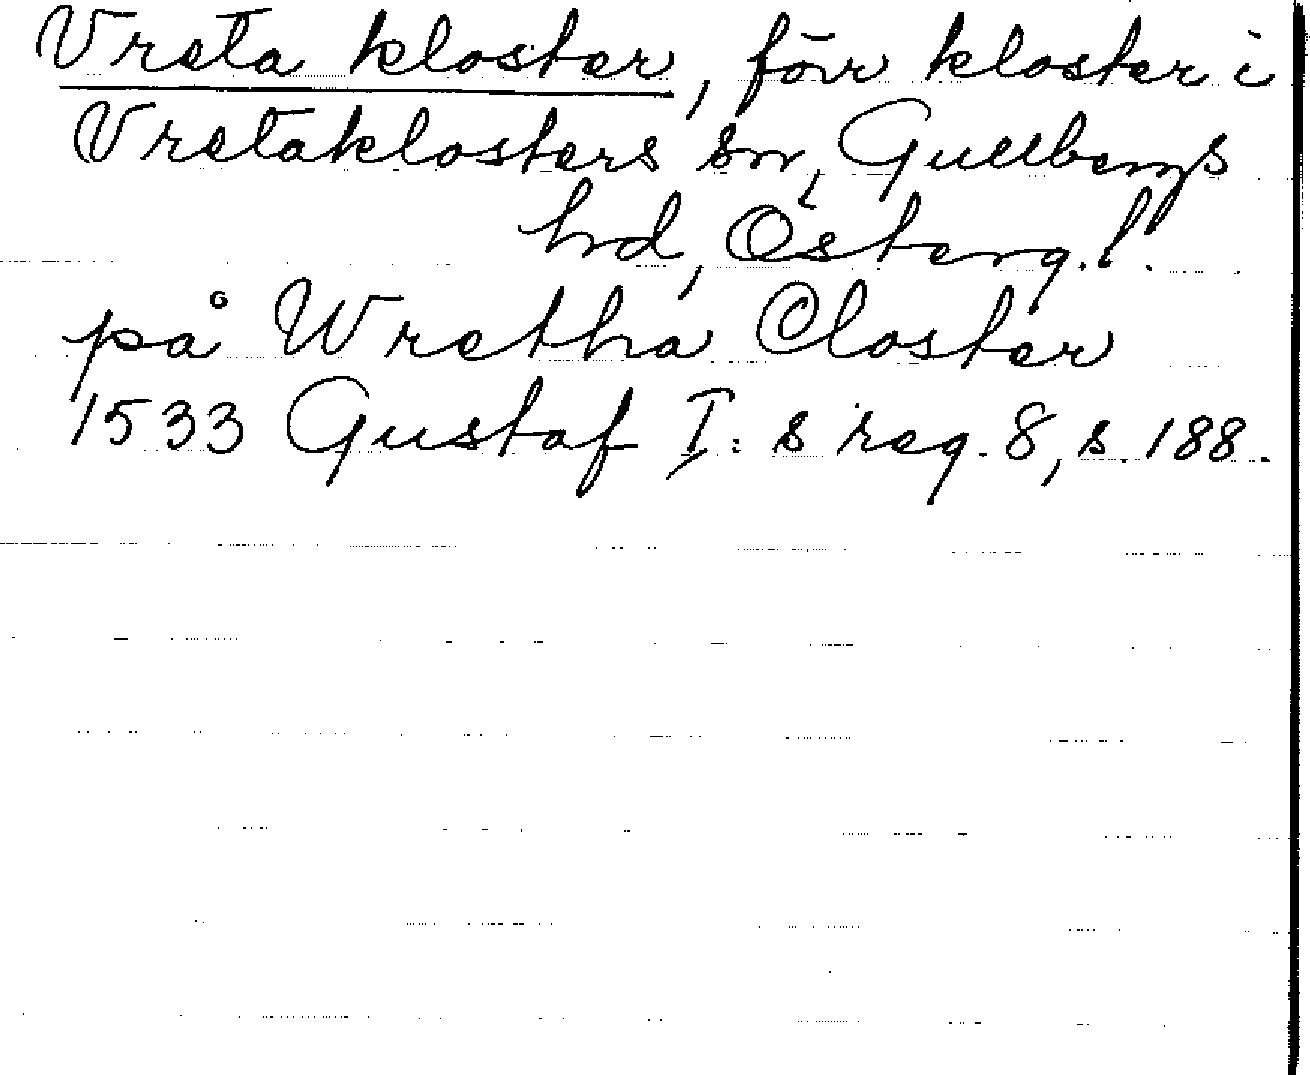 Vreta kloster, förr kloster i
Vretaklosters sn, Gullbergs
hrd, Österg. l.
på Wretha Closter
1533 Gustaf I: s reg. 8, s. 188.